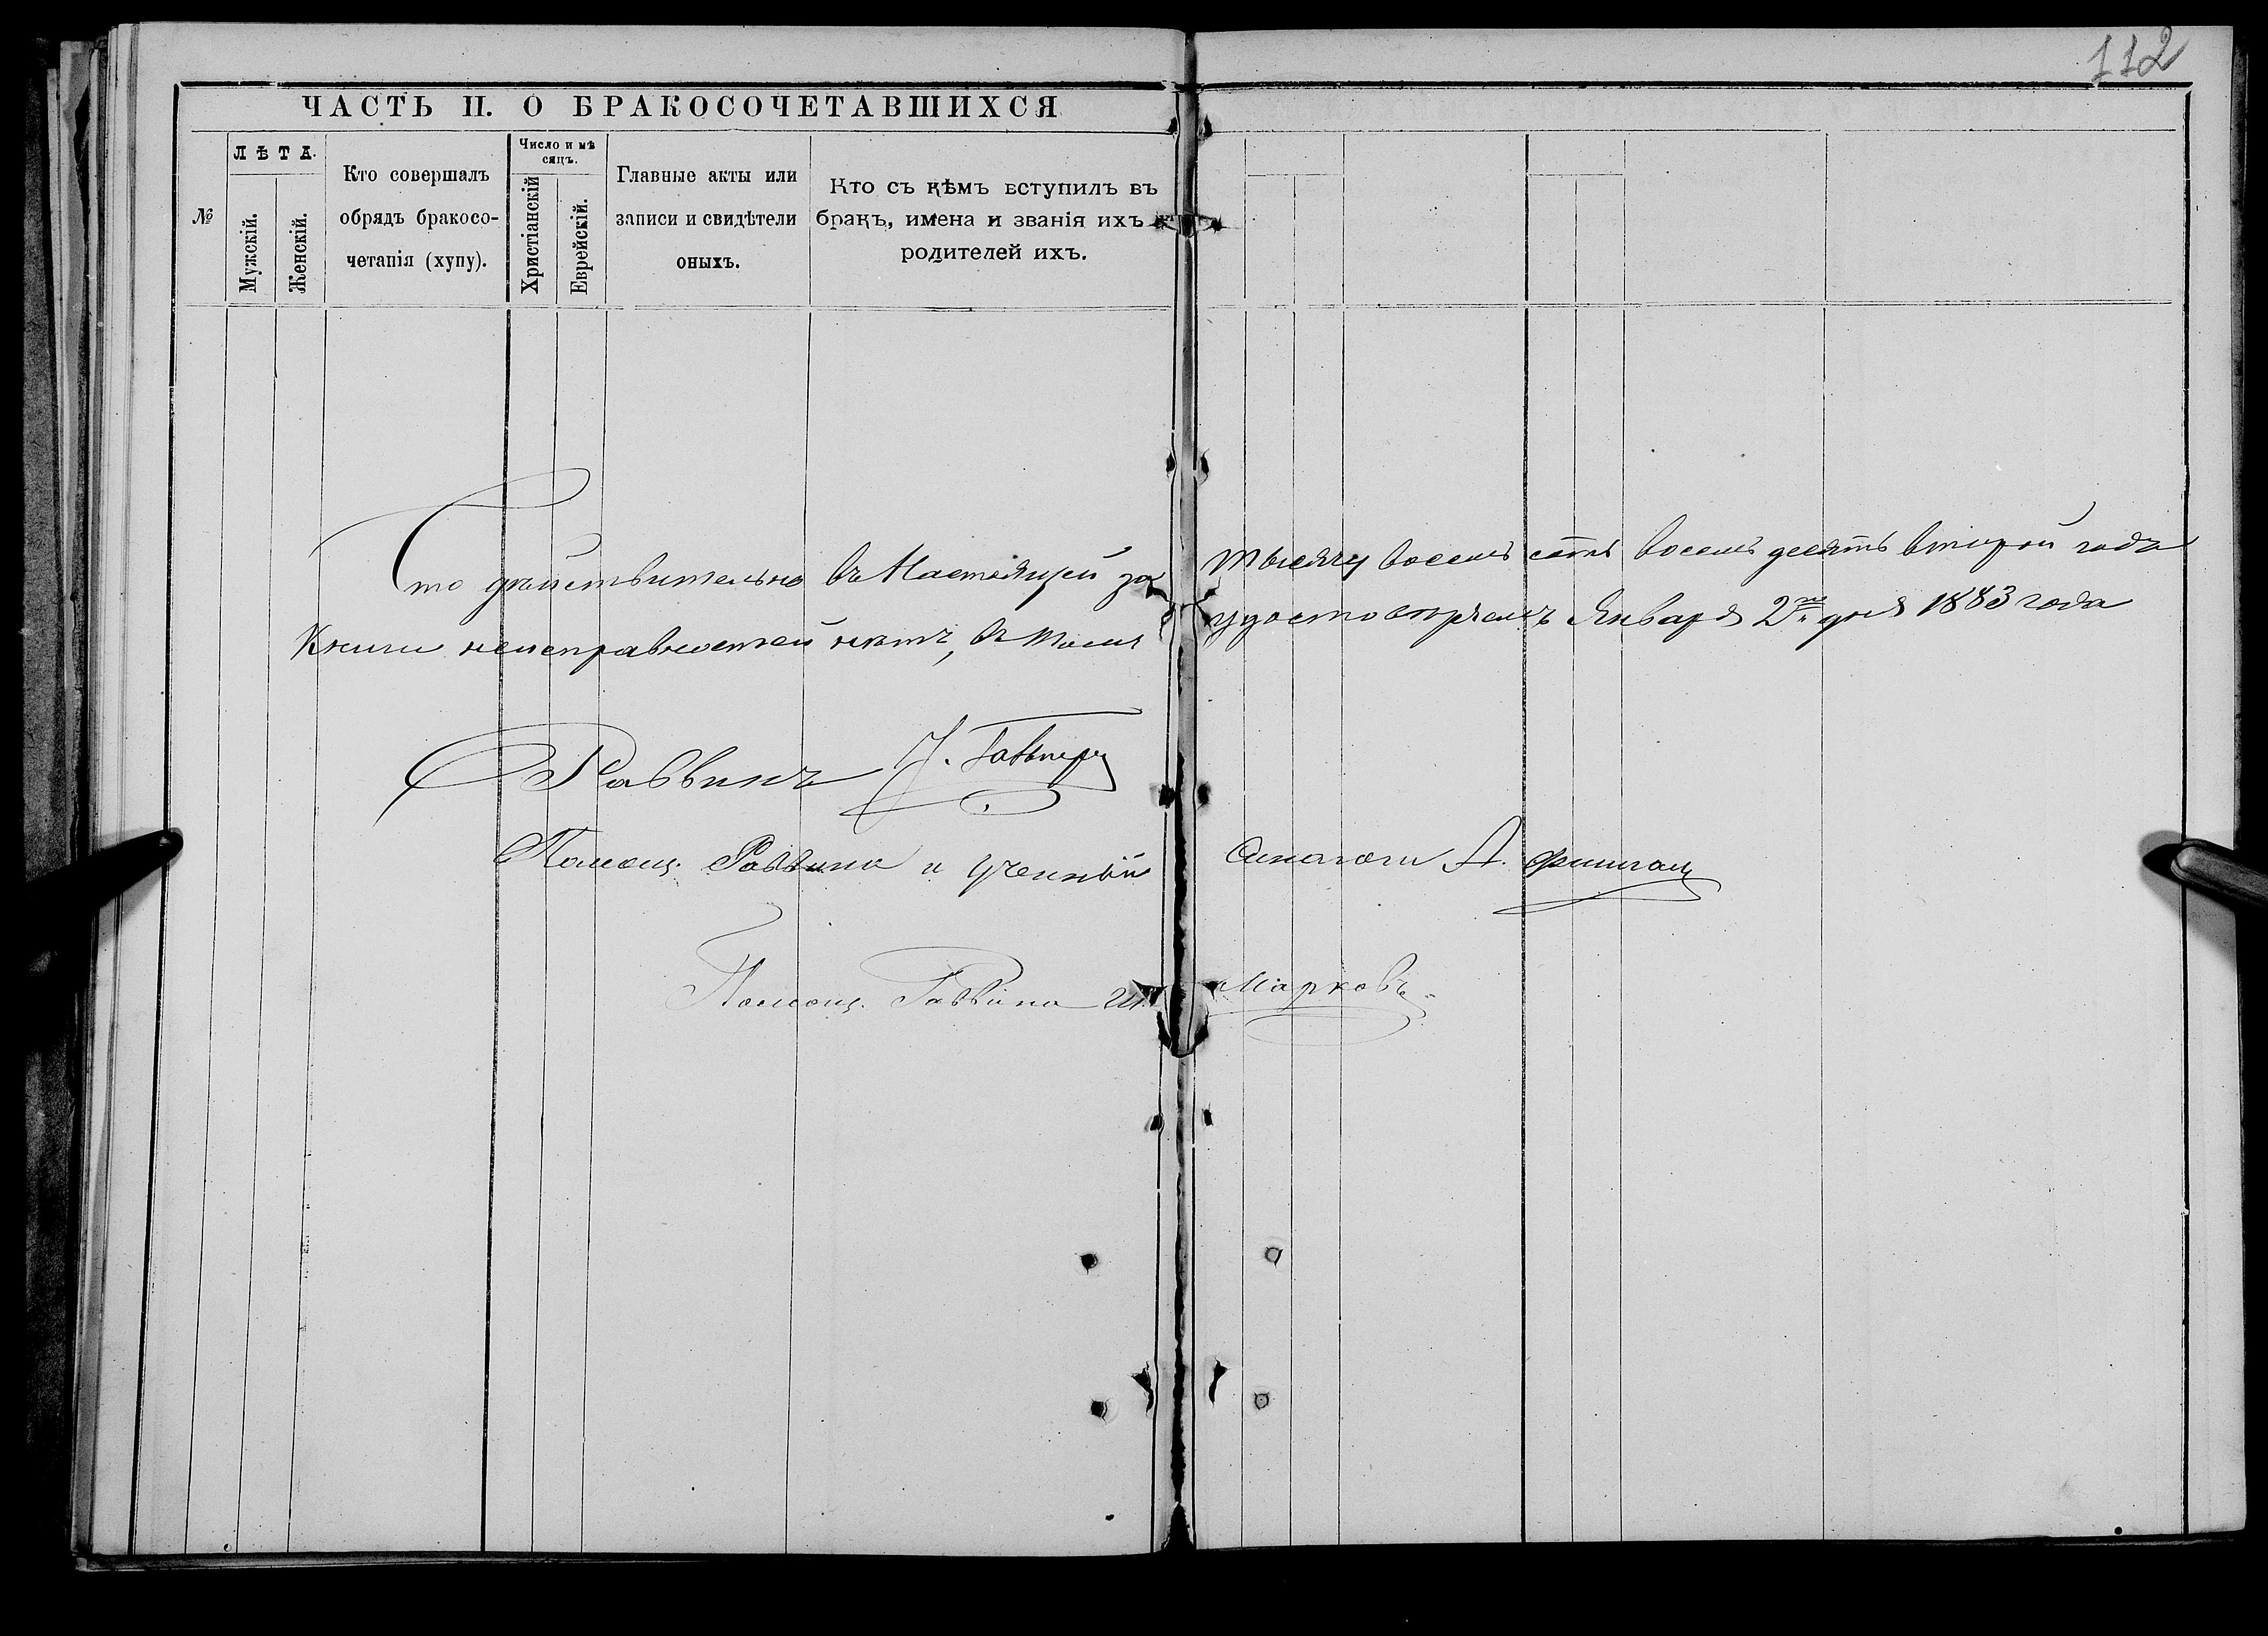 112
ЧАСТЬ II. О БРАКОСОЧЕТАВШИХСЯ
№
ЛѢТА.
Мужскій.
Женскій.
Кто совершалъ
обрядъ бракосо-
четанія (хупу).
Число и мѣ
сяцъ.
Христіанскій
Еврейскій.
Главные акты или
записи и свидѣтели
оныхъ.
Кто съ кѣмъ вступилъ въ
бракъ, имена и званія ихъ и
родителей ихъ.
Что дѣйствительно въ Настоящей за тысячу восемь сотъ восемь десятъ второй годъ
Книги неисправностей нѣтъ, въ томъ удостовѣряемъ Января 2го дня 1883 года
Раввинъ
Помощ. Раввина и ученный Синагоги А.
Помощ. Раввина Марковъ